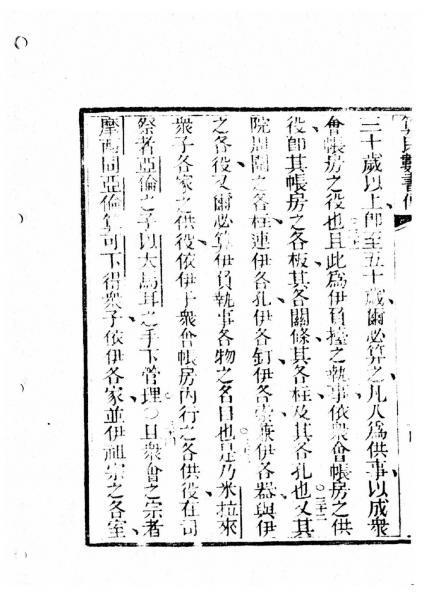 算民數書傳
三十歲以上即至五十歲爾必算之凡入為供事以成眾
會帳房之役也且此為伊負擡之執事依眾會帳房之供
役即其帳房之各板其各閂條其各柱及其各孔也又其
院周圍之各柱連伊各孔伊各釘伊各索兼伊各器與伊
之各役又爾必算伊負執事各物之名目也是乃米拉來
眾子各家之供役依伊于眾會帳房內行之各供役在司
祭者亞倫之子以大馬耳之手下管理○且眾會之宗者
摩西同亞倫算可下得眾子依伊各家並伊祖宗之各室